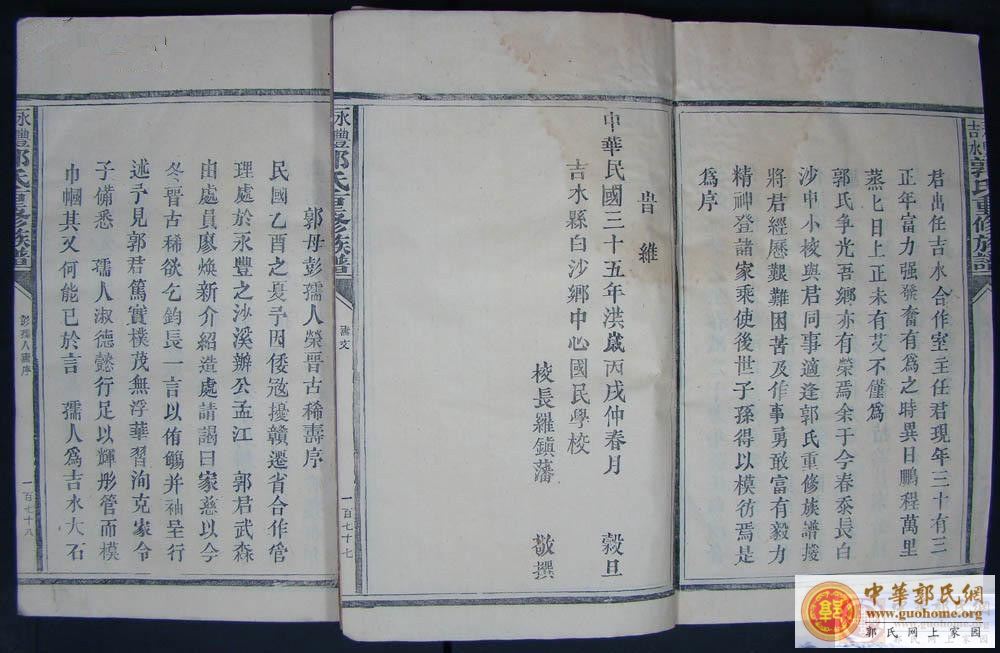 吉水郭氏重修族譜
君出任吉水合作室主任君現年三十有三
正年富力强發奮有為之時異日鵬程萬里
蒸七日上正未有艾不僅爲
郭氏爭光吾鄉亦有榮焉余于今春忝長白
沙中小校與君同事適逢郭氏重修族譜援
將君經歷艱難困苦及作事勇敢富有毅力
精神登諸家乘使後世子孫得以模彷焉是
爲序
旹維
中華民國三十五年洪歲丙戌仲春月 穀旦
吉水縣白沙鄉中心國民學校
校長羅鎮藩 敬撰
永豐郭氏重修族譜
壽文
一百七十七
郭母彭孺人榮晉古稀壽序
民國乙酉之夏予因倭寇擾贛遷省合作管
理處於永豐之沙溪辦公孟江 郭君武森
由處員廖煥新介紹造處請謁曰家慈以今
冬晉古稀欲乞鈞長一言以侑觴并袖呈行
述予見郭君篤實樸茂無浮華習洵克家令
子備悉 孺人淑德懿行足以輝彤管而模
巾幗其又何能已於言 孺人爲吉水大石
永豐郭氏重修族譜
彭孺人壽序
一百七十八
中華郭氏網
www.guohome.org
郭氏网上家园